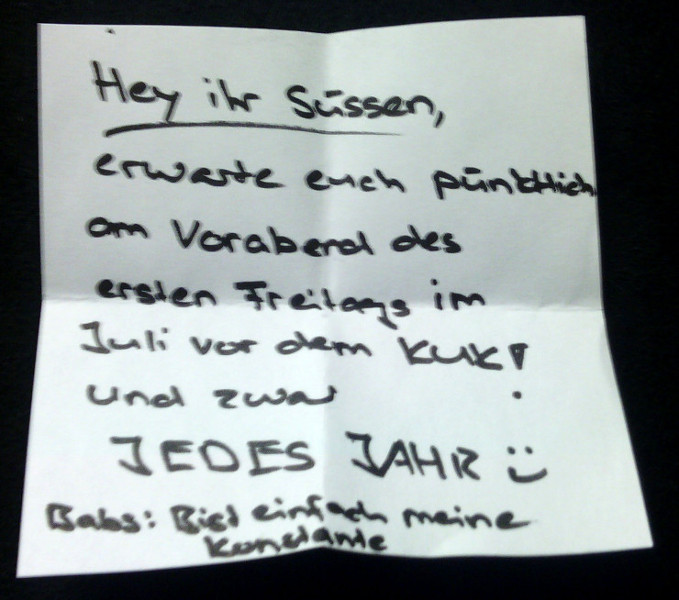 Hey ihr Süssen,
erwarte euch pünktlich
am Vorabend des
ersten Freitags im
Juli vor dem KUK!
und zwar
JEDES JAHR :)
Babs: Bist einfach meine
Konstante